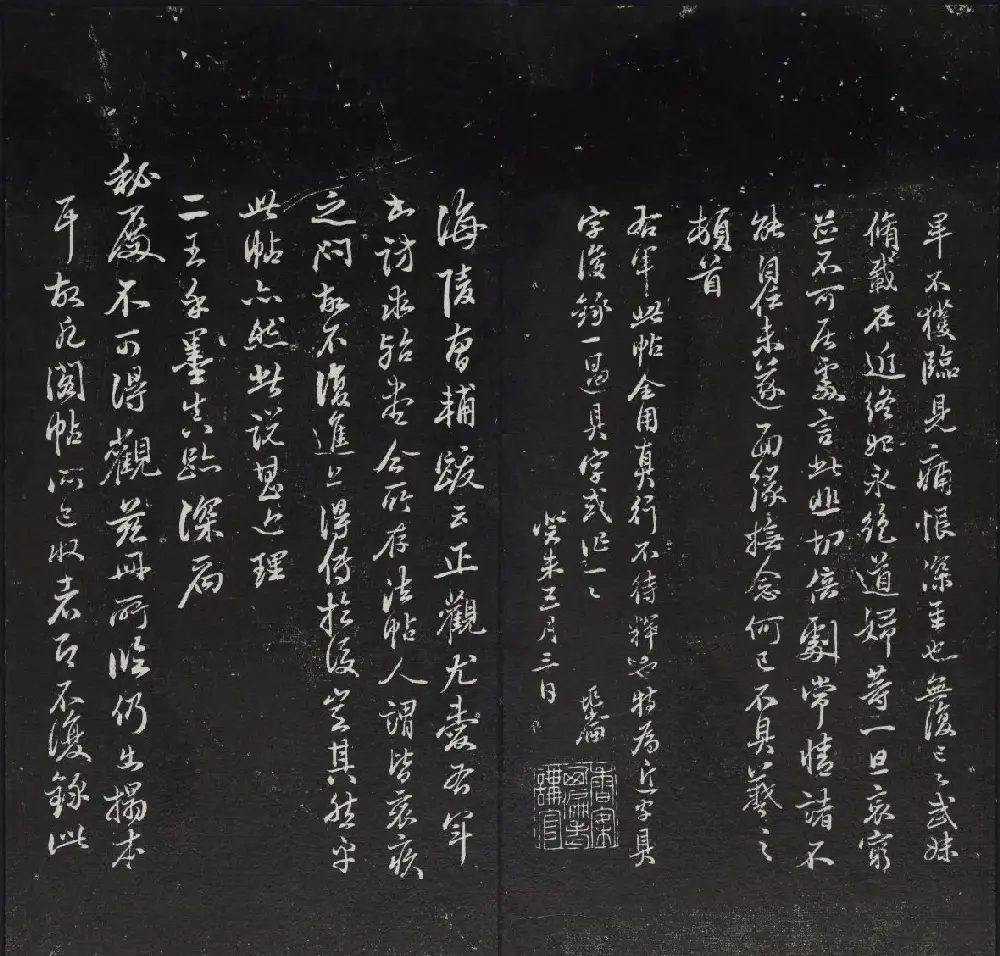 卑不獲臨見痛恨深至也無復已已武妹
脩載在近終始永絕道婦等一旦哀窮
並不可居處言此悲切倍劇常情諸不
能自任未遂面緣撫念何已不具羲之
頓首
右軍此帖全用真行不待釋也特為之字具
字後錄一過具字或
癸未三月三日
海陵曾輔跋云正觀尤愛右軍
書訪求殆盡今所存法帖人謂皆哀疾
之問故不復進上得傳於後豈其然乎
此帖亦然此說甚近理
二王手墨真跡深扃
秘殿不可得觀茲冊所臨仍出搨本
耳故凡閣帖所已收者即不復錄此